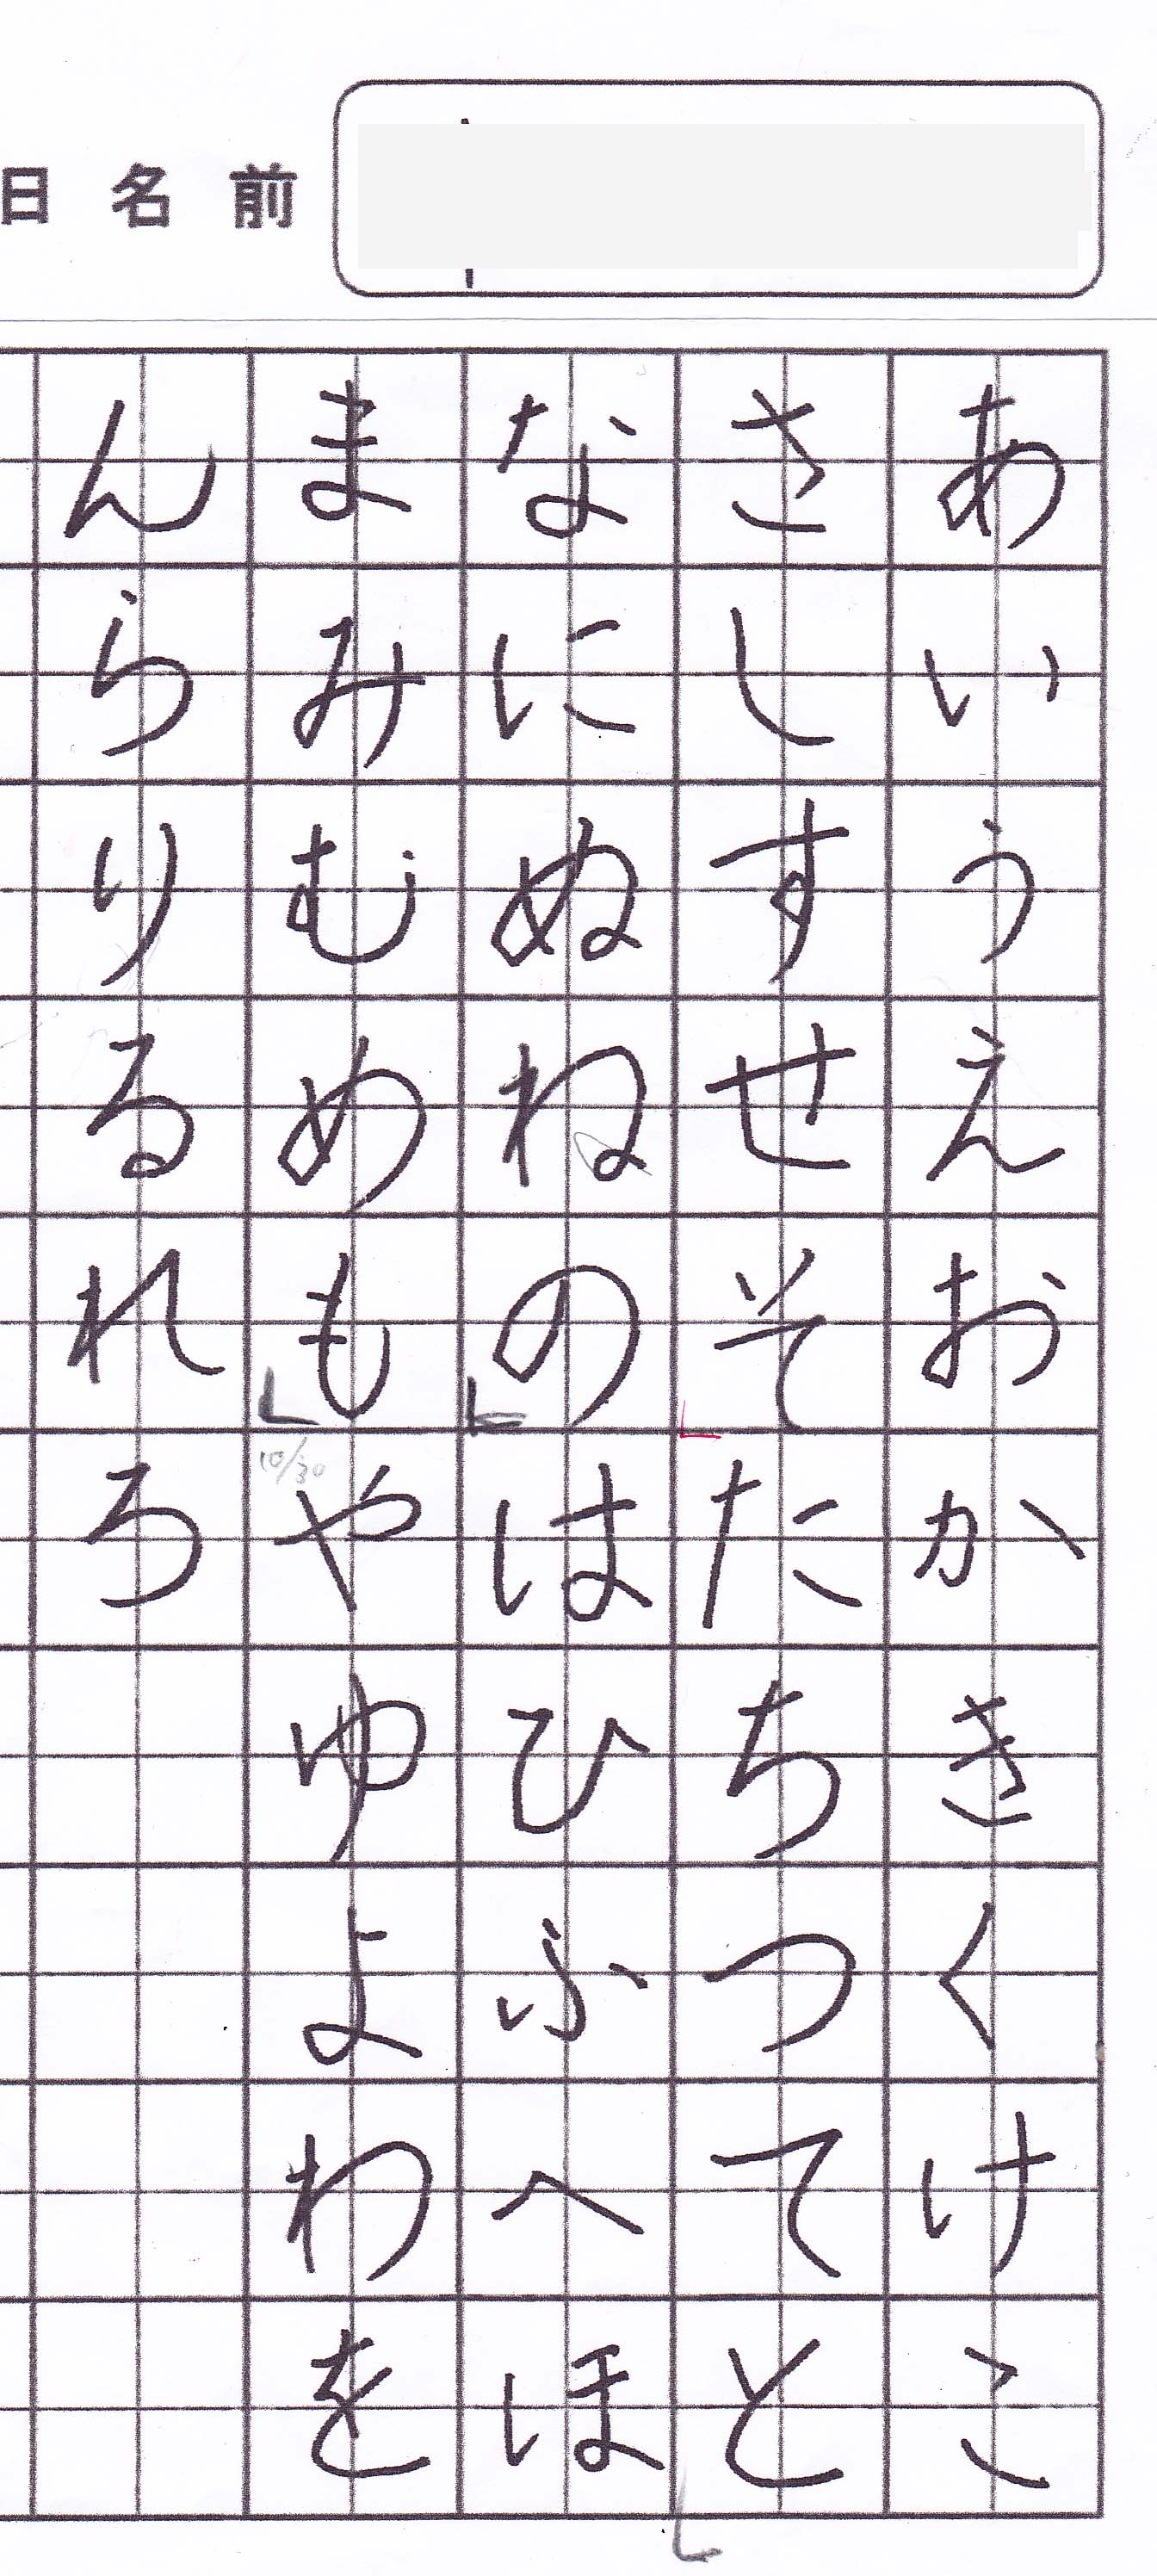 日 名 前
あいうえおかきくけこ
さしすせそたちつてと
なにぬねのはひふへほ
まみむめもやゆよわを
10/30
んらりるれろ